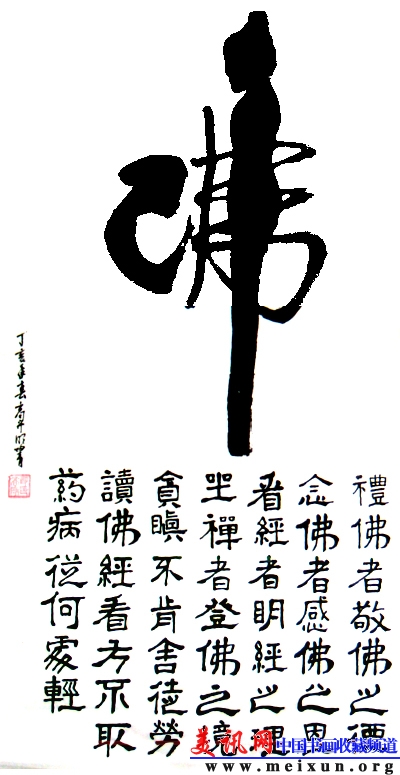 佛
禮佛者敬佛之德
念佛者感佛之恩
看經者明經之理
坐禪者登佛之境
貪瞋不肯舍徒勞
讀佛經看方不取
葯病從何處輕
丁亥年春
美讯网 中国书画收藏频道
www.meixun.org